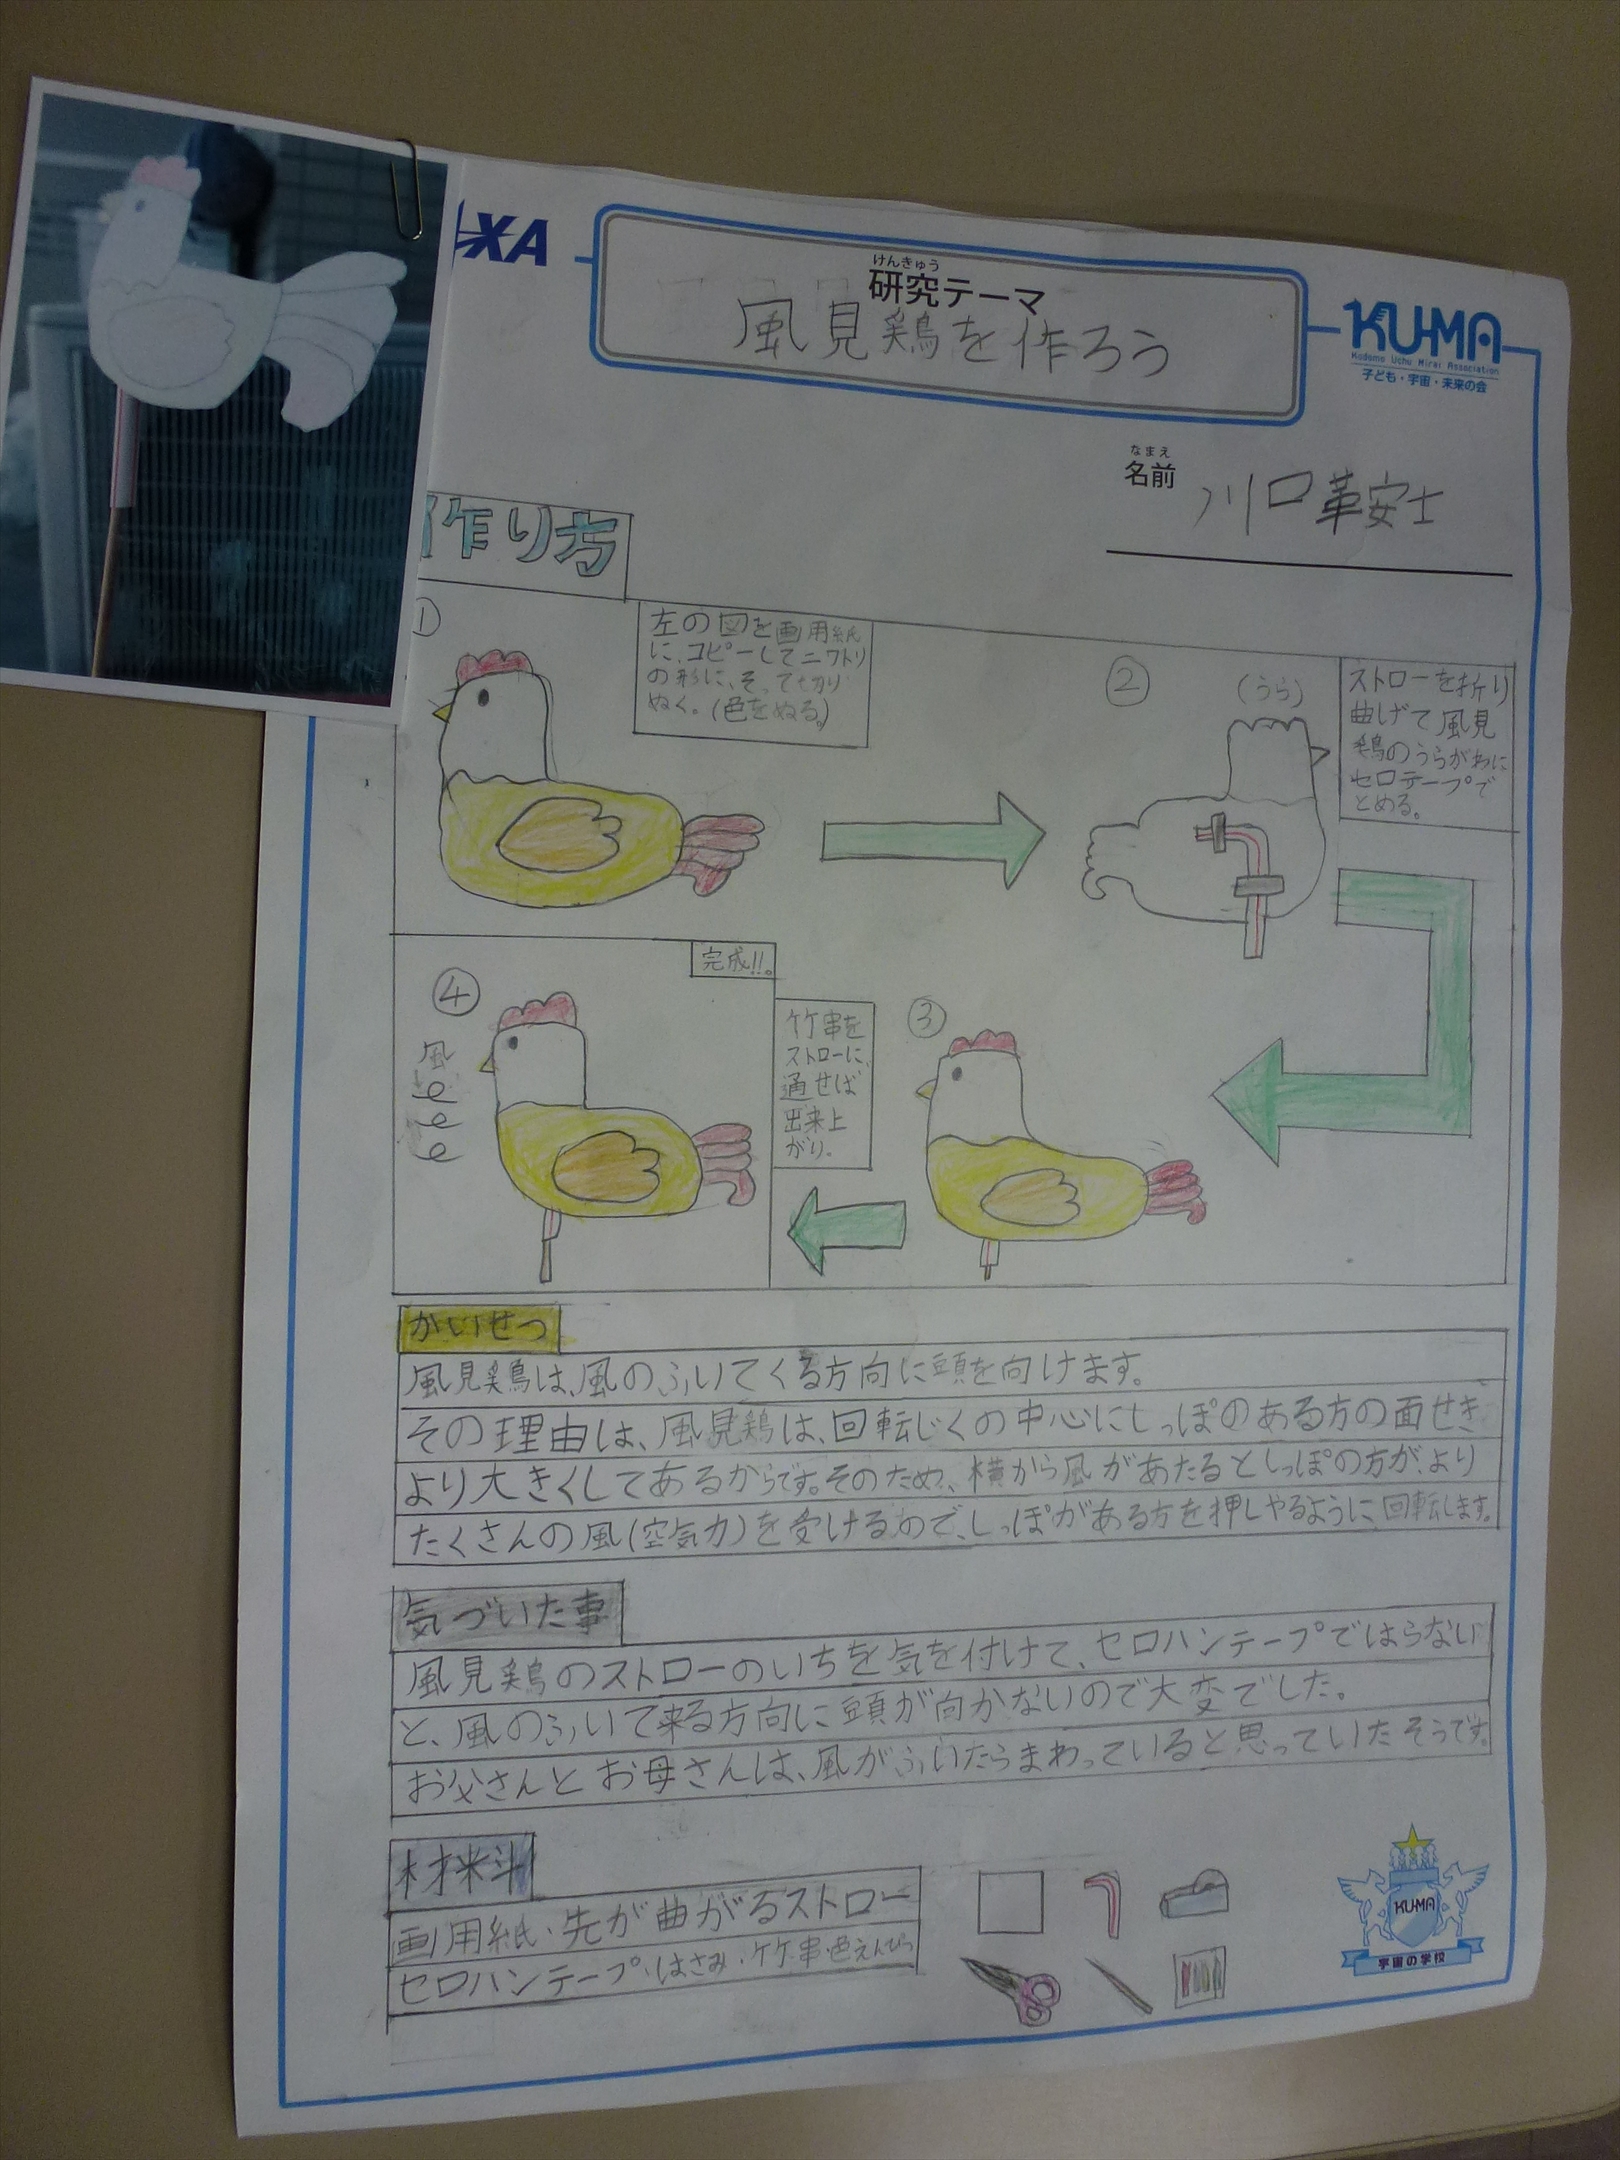 XA
けんきゅう
研究テーマ
風見鶏を作ろう
KU-MA
Kodomo Uchu Mirai Association
子ども・宇宙・未来の会
なまえ
名前
川口華安士
作り方
①
左の図を画用紙
に、コピーしてニワトリ
の形に、そって切り
ぬく。(色をぬる。)
②
(うら)
ストローを折り
曲げて風見
鶏のうらがわに
セロテープで
とめる。
③
竹串を
ストローに、
通せば
出来上
がり。
④
完成!!。
風
かいせつ
風見鶏は、風のふいてくる方向に頭を向けます。
その理由は、風見鶏は、回転じくの中心にしっぽのある方の面せき
より大きくしてあるからです。そのため、横から風があたるとしっぽの方が、より
たくさんの風(空気力)を受けるので、しっぽがある方を押しやるように回転します。
気づいた事
風見鶏のストローのいちを気を付けて、セロハンテープではらない
と、風のふいて来る方向に頭が向かないので大変でした。
お父さんとお母さんは、風がふいたらまわっていると思っていたそうです。
材料
画用紙・先が曲がるストロー
セロハンテープ・はさみ・竹串・色えんぴつ
KU-MA
宇宙の学校